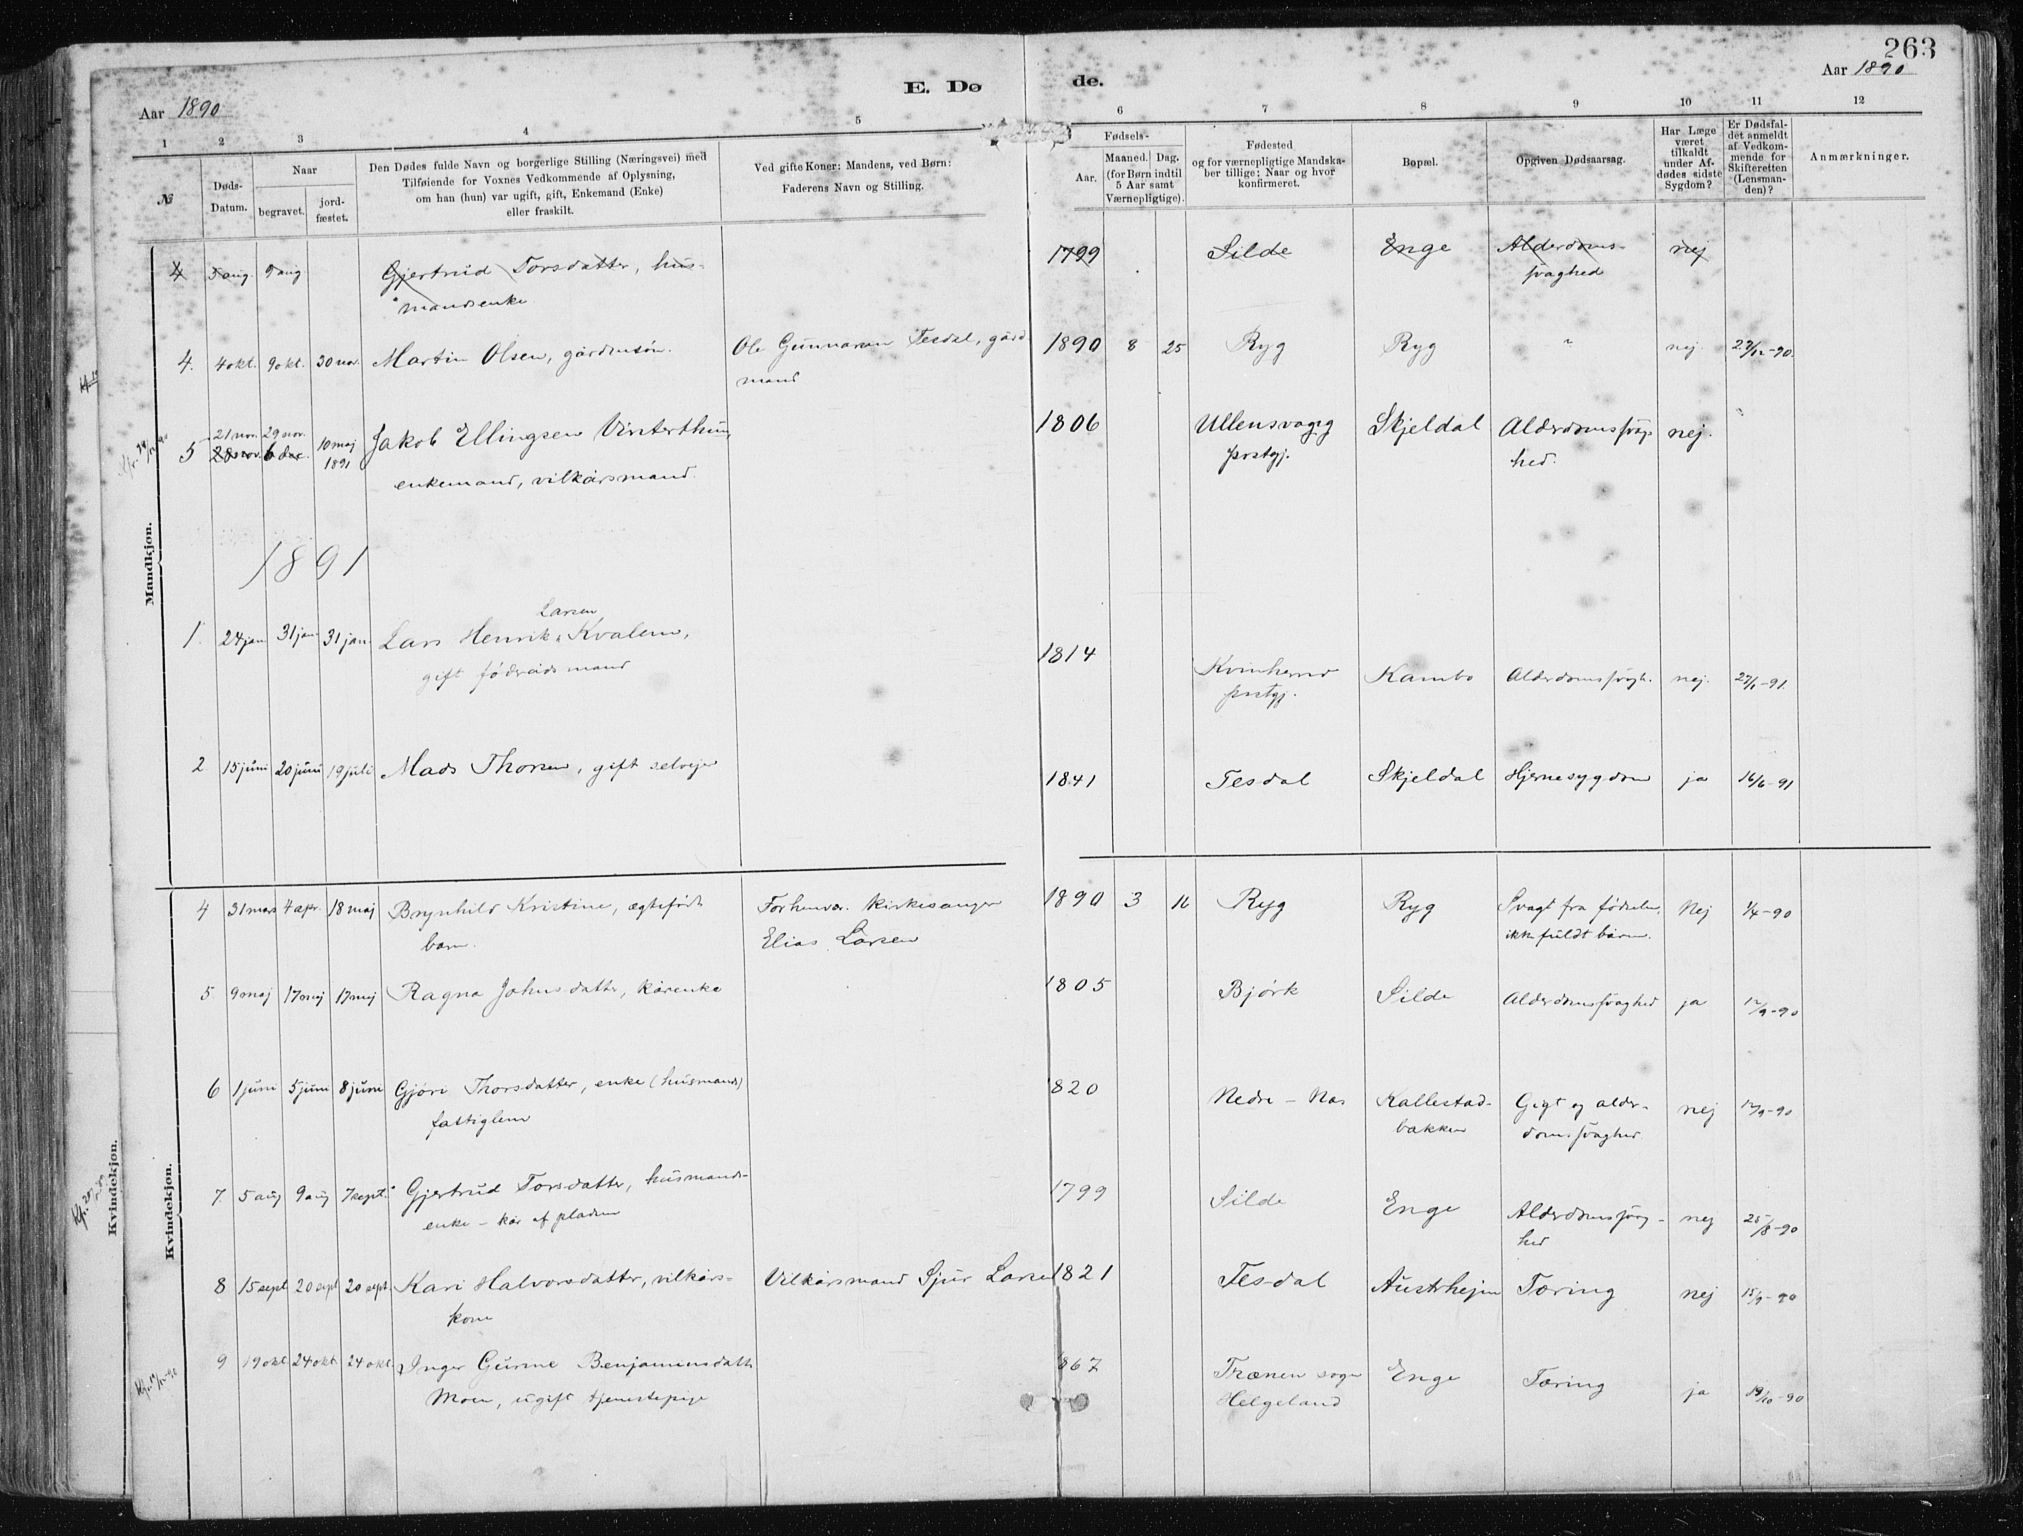 263
Aar 1890
E. Dø de.
Aar 1890
1 2 3 4 5 6 7 8 9 10 11 12
№
Døds-Datum.
Naar
begravet.
jord-fæstet.
Den Dødes fulde Navn og borgerlige Stilling (Næringsvei) med
Tilføiende for Voxnes Vedkommende af Oplysning,
om han (hun) var ugift, gift, Enkemand (Enke)
eller fraskilt.
Ved gifte Koner: Mandens, ved Børn:
Faderens Navn og Stilling.
Fødsels-
Aar.
Maaned. Dag.
(for Børn indtil
5 Aar samt
Værnepligtige).
Fødested
og for værnepligtige Mandska-
ber tillige: Naar og hvor
konfirmeret.
Bopæl.
Opgiven Dødsaarsag.
Har Læge
været
tilkaldt
under Af-
dødes sidste
Sygdom?
Er Dødsfal-
det anmeldt
af Vedkom-
mende for
Skifteretten
(Lensman-
den)?
Anmærkninger.
Mandkjøn.
4 5 aug 9 aug Gjertrud Torsdatter, hus- 1799 Silde Enge Alderdoms- nej
mandsenke svaghed
4. 4 okt. 9 okt. 30 nov. Martin Olsen, gårdmsøn. Ole Gunnarson Tesdal, gård 1890 8 25 Ryg Ryg " nej 22/12-90.
mand
21 nov. 29 nov.
5 28 nov. 6 dec 10 maj 1891 Jakob Ellingsen Vinterthun, 1806 Ullensvang Skjeldal Alderdomssvag- nej.
enkemand, vilkårsmand. prstgj. hed.
1891
Larsen
1. 24 jan 31 jan 31 jan Lars Henrik Kvalem, 1814 Kvinherred Kambo Alderdomssvgh. nej. 27/1-91.
gift føderådsmand prstgj.
2 15 juni 20 juni 19 juli Mads Thorsen, gift selvejer 1841 Tesdal Skjeldal Hjernesygdom ja 16/6-91
Kvindekjøn.
4 31 mars 4 apr. 18 maj Brynhild Kristine, ægtefødt Forhenvær. kirkesanger 1890 3 16 Ryg Ryg Svagt fra fødselen, Nej 1/4-90
barn. Elias Larsen ikke fuldt båren.
5 9 maj 17 maj 17 maj Ragna Johnsdatter, kårenke 1805 Bjørk Silde Alderdomssvaghed ja 12/9-90
6 1 juni 5 juni 8 june Gjøri Thorsdatter, enke (husmands) 1820 Nedre-Nas Kallestad- Gigt og alder- nej 12/9-90
fattiglem bakken domssvaghed.
7. 5 aug 9 aug 7 sept. Gjertrud Torsdatter, husmands- 1799 Silde Enge Alderdomssvag- nej 25/8-90
enke - kår af pladsen hed
8 15 sept 20 sept 20 sept. Kari Halvorsdatter, vilkårs- Vilkårsmand Sjur Larsen 1821 Tesdal Austrhejm Tæring nej 15/9-90
kone
9 19 okt 24 okt. 24 okt. Inger Gurine Benjaminsdatt. 1867 Trænen sogn Enge Tæring ja 19/10-90
Moen, ugift tjenestepige Helgeland
Kvindekjøn.